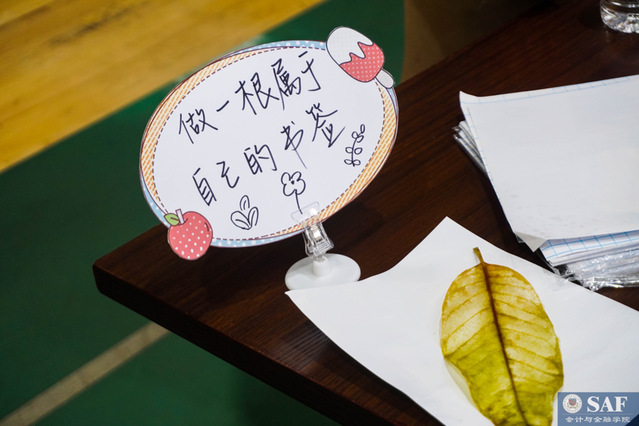 做一根属于
自己的书签
SAF
会计与金融学院